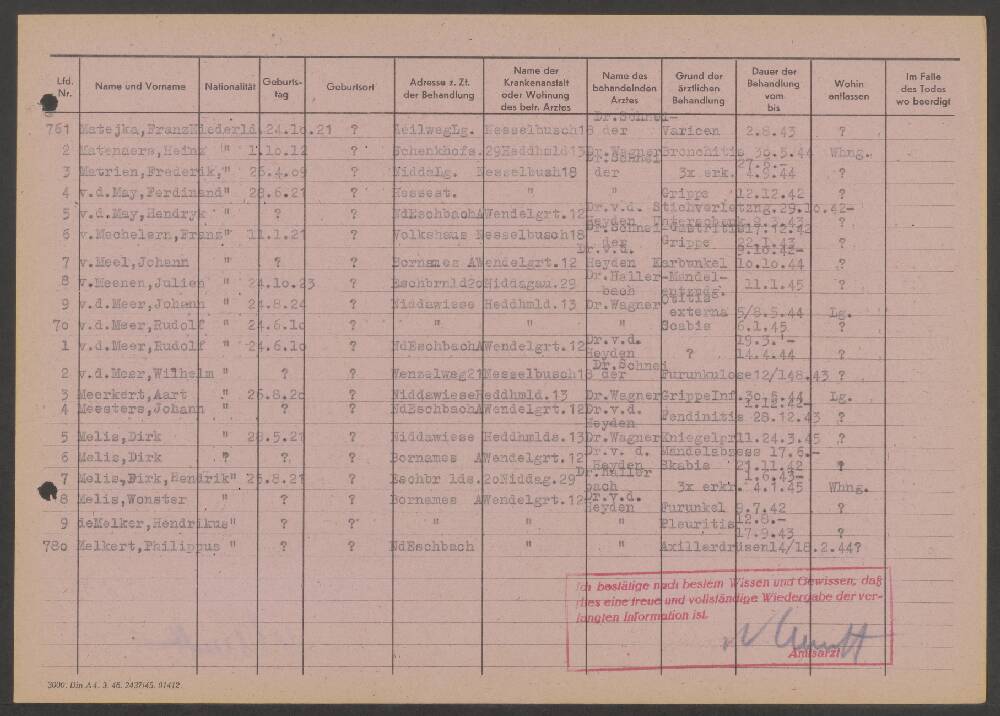 Lfd. Nr. Name und Vorname Nationalität Geburts-tag Geburtsort Adresse z. Zt. der Behandlung Name der Krankenanstalt oder Wohnung des betr. Arztes Name des behandelnden Arztes Grund der ärztlichen Behandlung Dauer der Behandlung vom bis Wohin entlassen Im Falle des Todes wo beerdigt
Dr.Schnei-
761 Matejka,Franz Niederld. 24.10.21 ? HeilwegLg. Nesselbusch18 der Varicen 2.8.43 ?
2 Matenaers,Heinz " 1.10.12 ? Schenkhofs.29 Heddhmld13 Dr.Wagner Bronchitis 30.5.44 Whng.
Dr.Schnei 27.6.-
3 Matrien,Frederik," 26.4.09 ? NiddaLg. Nesselbush18 der 3x erk. 4.9.44 ?
4 v.d.May,Ferdinand" 28.6.21 ? Hessest. " " Grippe 12.12.42 ?
Dr.v.d. Stichverletzng.29.10.42-
5 v.d.May,Hendryk " ? ? NdEschbachA Wendelgrt.12 Heyden Unterschenk.9.1.43 ?
Dr.Schnei Gastritis 17.12.42
6 v.Mechelern,Frans" 11.1.21 ? Volkshaus Nesselbusch18 der Grippe 22.1.43 ?
Dr.v.d. 9.10.42-
7 v.Meel,Johann " ? ? Bornames A Wendelgrt.12 Heyden Karbunkel 10.10.44 ?
Dr.Haller- Mandel-
8 v.Meenen,Julien " 24.10.23 ? Eschbrnld20 Niddagau.29 bach entzndg. 11.1.45 ?
Otitis
9 v.d.Meer,Johann " 24.8.24 ? Niddawiese Heddhmld.13 Dr.Wagner externa 5/8.5.44 Lg.
70 v.d.Meer,Rudolf " 24.6.10 ? " " " Scabis 6.1.45 ?
Dr.v.d. 19.3.'-
1 v.d.Meer,Rudolf " 24.6.10 ? NdEschbachA Wendelgrt.12 Heyden ? 14.4.44 ?
Dr.Schnei
2 v.d.Meer,Wilhelm " ? ? Wenzelweg21 Nesselbusch18 der Furunkulose 12/148.43 ?
3 Meerkert,Aart " 26.8.20 ? Niddawiese Heddhmld.13 Dr.Wagner GrippeInf. 30.5.44 Lg.
1.12.42-
4 Meesters,Johann " ? ? NdEschbachA Wendelgrt.12 Dr.v.d. Heyden Tendinitis 28.12.43 ?
5 Melis,Dirk " 28.5.21 ? Niddawiese Heddhmlds.13 Dr.Wagner Kniegelpr11.24.3.45 ?
Dr.v. d. Mandelabzess 17.6.-
6 Melis,Dirk ? ? ? Bornames A Wendelgrt.12 Heyden Skabis 21.11.42 ?
Dr.Haller 1.6.43-
7 Melis,Dirk,Hendrik" 26.8.21 ? Eschbr lds.20 Niddag.29 bach 3x erkr. 4.1.45 Whng.
8 Melis,Wonster " ? ? Bornames A Wendelgrt.12 Dr.v.d. Heyden Furunkel 9.7.42 ?
Pleuritis 12.8.-
9 deMelker,Hendrikus" ? ? " " " 17.9.43 ?
780 Melkert,Philippus " ? ? NdEschbach " " Axillardrüsen14/18.2.44?
Ich bestätige nach bestem Wissen und Gewissen, daß
dies eine treue und vollständige Wiedergabe der ver-
langten Information ist.
Amtsarzt
3000. Din A 4. 3. 46. 2437/45. 91412